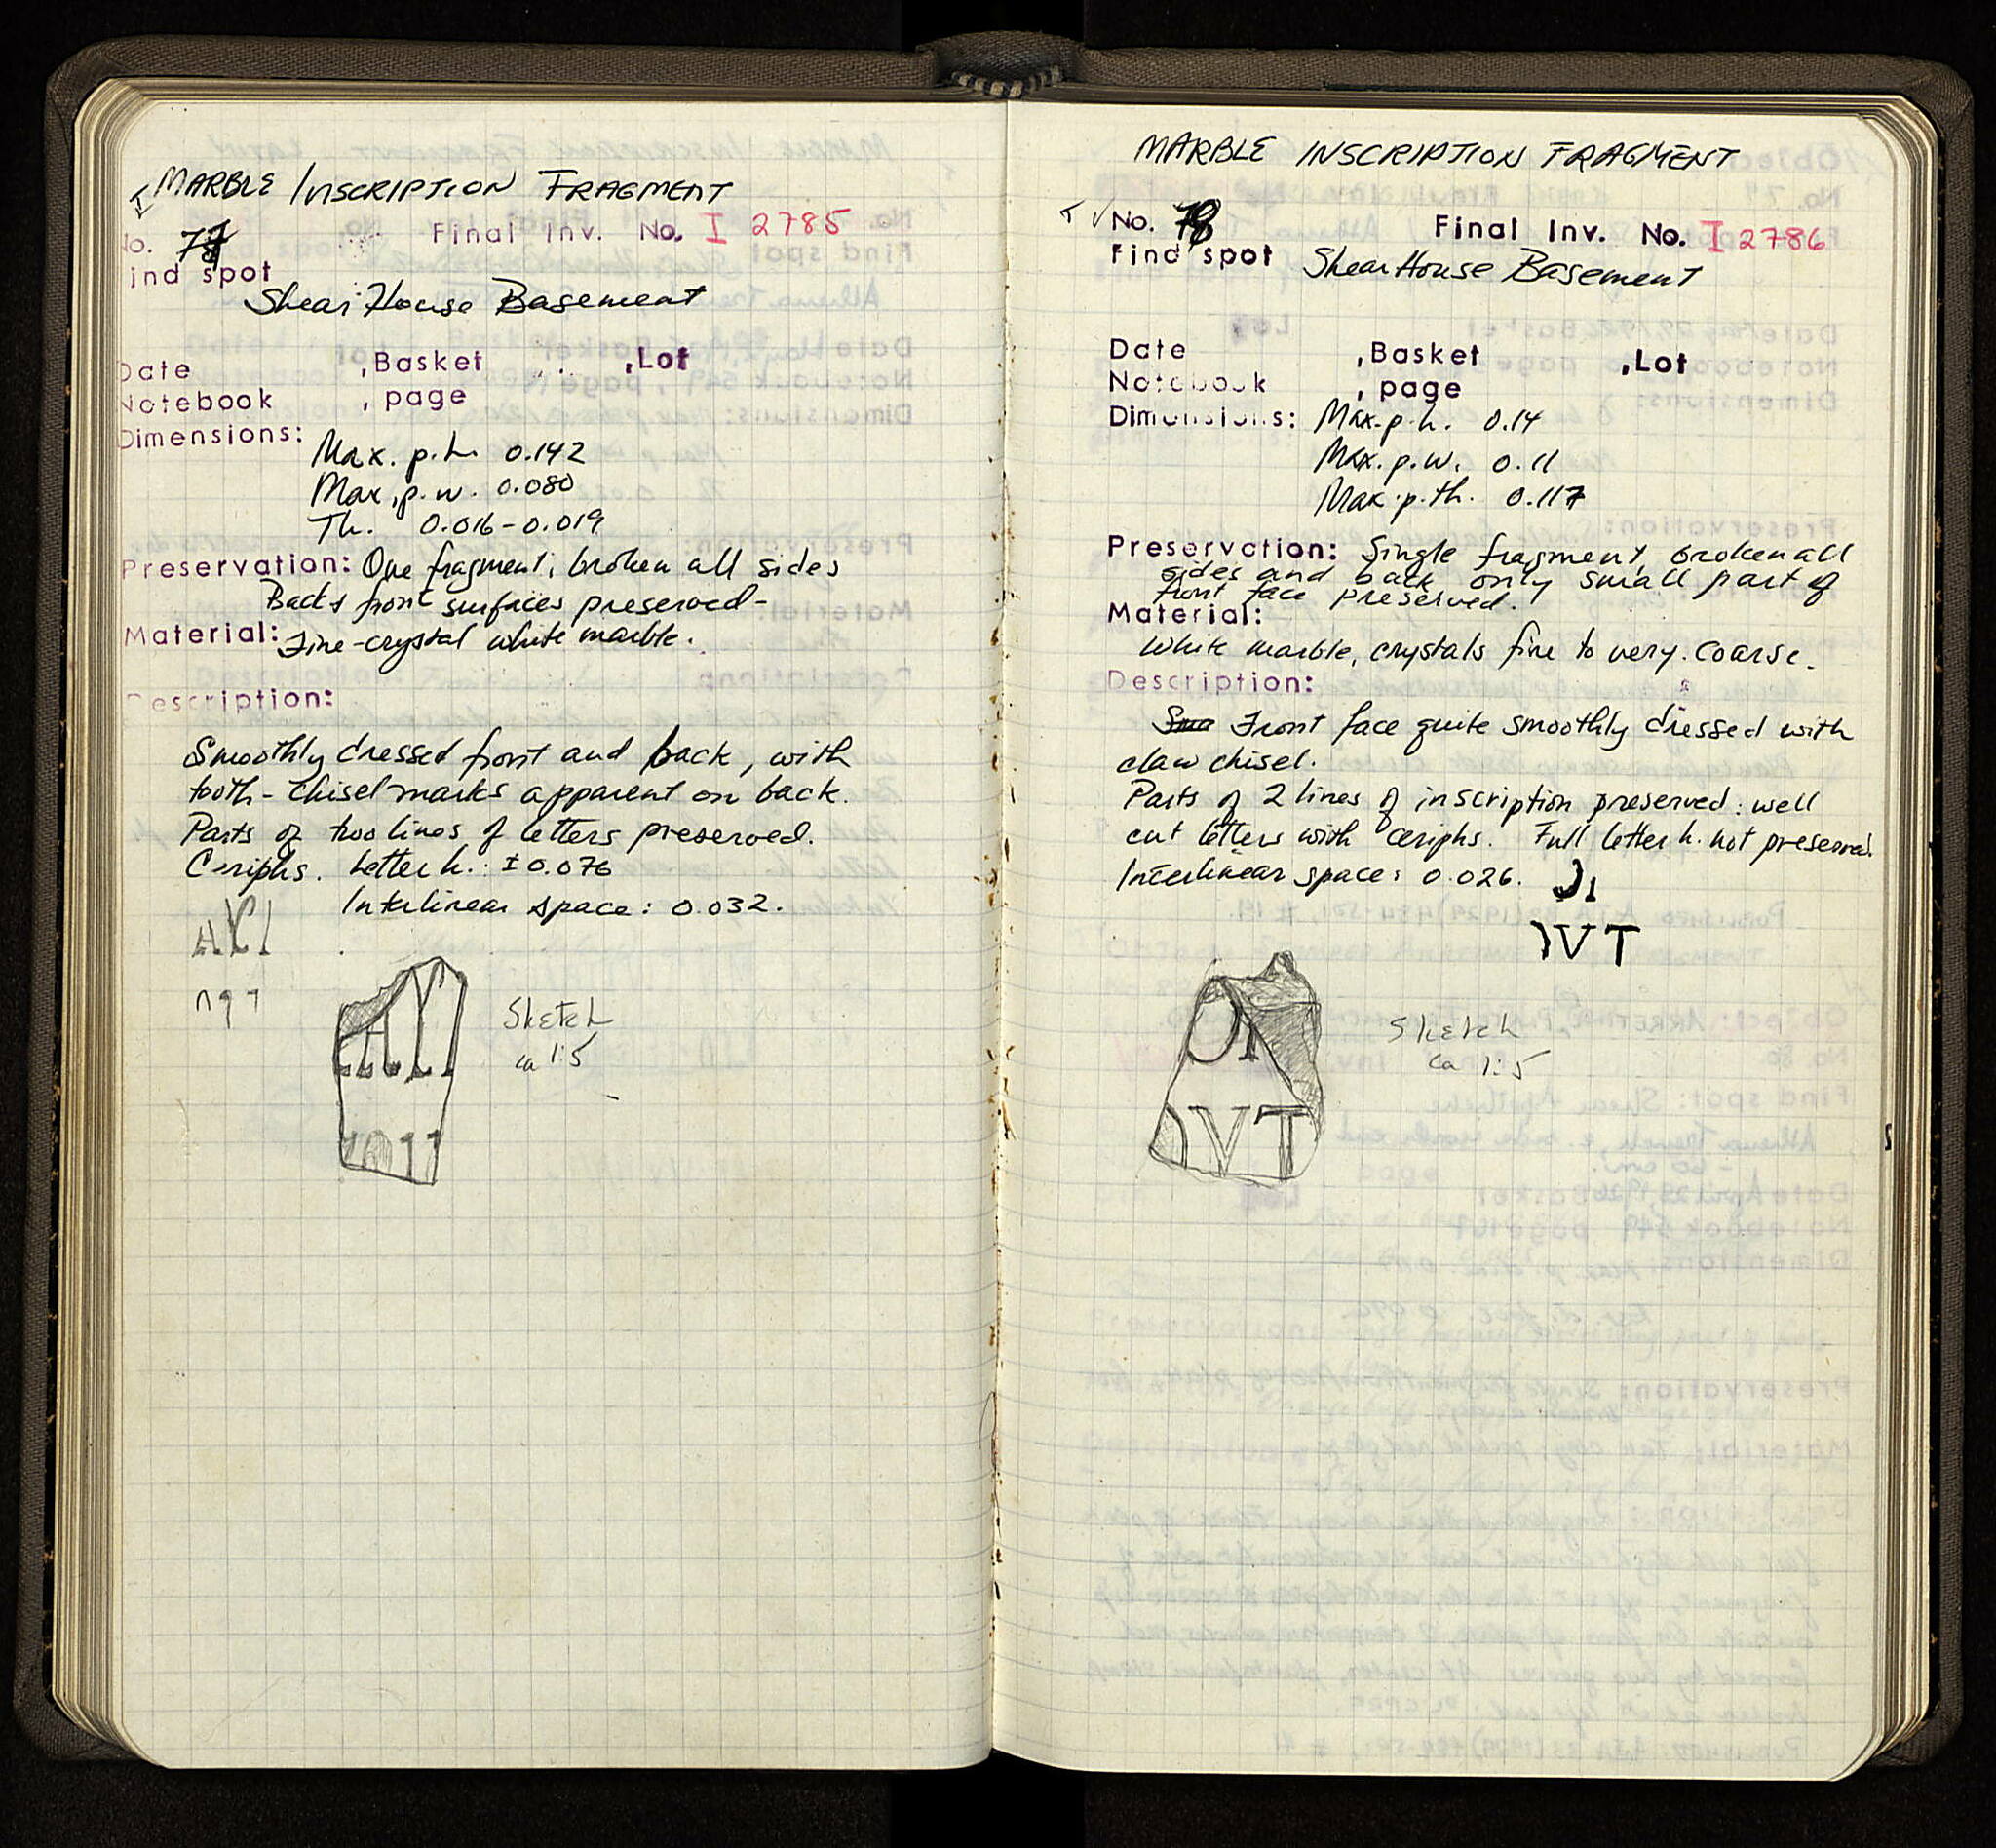 MARBLE INSCRIPTION FRAGMENT
No. 77 Final Inv. No. I 2785
Find spot
Shear House Basement
Date , Basket , Lot
Notebook , page
Dimensions:
Max. p.h. 0.142
Max. p.w. 0.080
Th. 0.016-0.019
Preservation: One fragment; broken all sides
Back & front surfaces preserved-
Material: Fine-crystal white marble.
Description:
Smoothly dressed front and back, with
tooth-chisel marks apparent on back.
Parts of two lines of letters preserved.
Ceriphs. Letter h.: ±0.076
Interlinear space: 0.032.
Sketch
ca 1:5
MARBLE INSCRIPTION FRAGMENT
No. 78 Final Inv. No. I 2786
Find spot Shear House Basement
Date , Basket , Lot
Notebook , page
Dimensions: Max. p.h. 0.14
Max. p.w. 0.11
Max. p.th. 0.117
Preservation: Single fragment, broken all
sides and back only small part of
front face preserved.
Material:
White marble, crystals fine to very coarse.
Description:
Front face quite smoothly dressed with
claw chisel.
Parts of 2 lines of inscription preserved: well
cut letters with ceriphs. Full letter h. not preserved.
Interlinear space: 0.026.
)VT
Sketch
ca 1:5
OVT